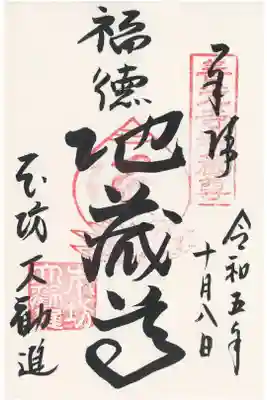 奉拝
令和五年
十月八日
福徳
地蔵尊
本坊 大勧進